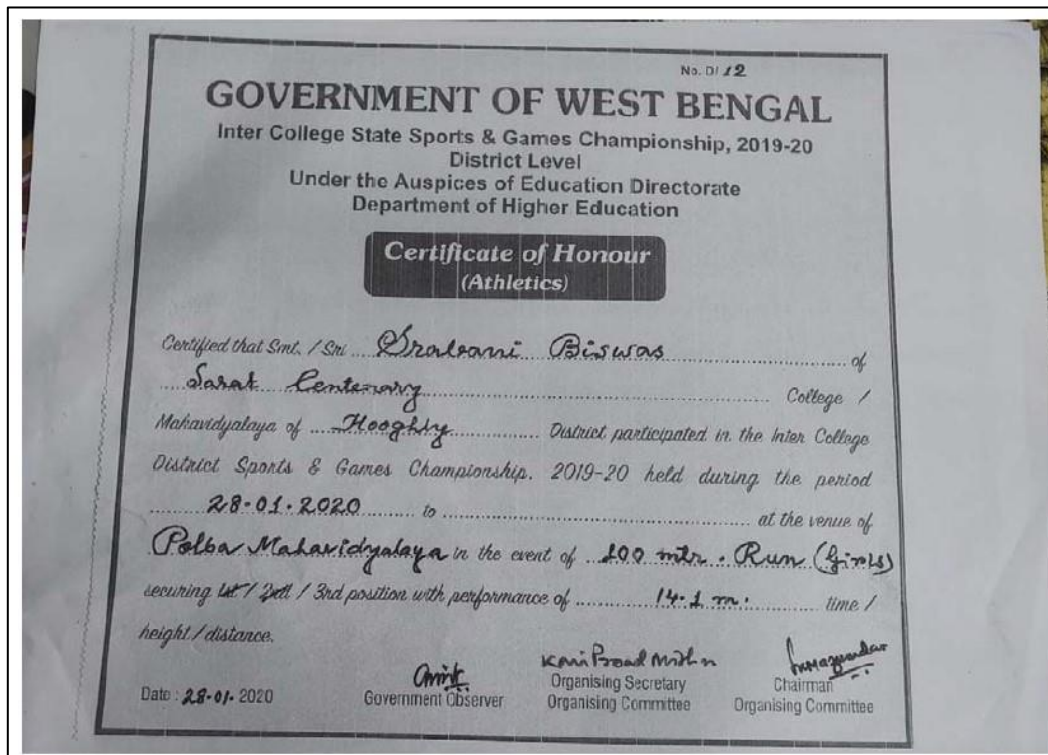 No. D/ 12
GOVERNMENT OF WEST BENGAL
Inter College State Sports & Games Championship, 2019-20
District Level
Under the Auspices of Education Directorate
Department of Higher Education
Certificate of Honour
(Athletics)
Certified that Smt. / Sri ... Sraboni Biswas ... of
... Sarat Centenary ... College /
Mahavidyalaya of ... Hooghly ... District participated in the Inter College
District Sports & Games Championship, 2019-20 held during the period
... 28.01.2020 ... to ... at the venue of
Polba Mahavidyalaya in the event of ... 100 mtr. Run (Girls)
securing 1st / 2nd / 3rd position with performance of ... 14.1 m. ... time /
height / distance.
Date : 28.01.2020
Government Observer
Organising Secretary
Organising Committee
Chairman
Organising Committee